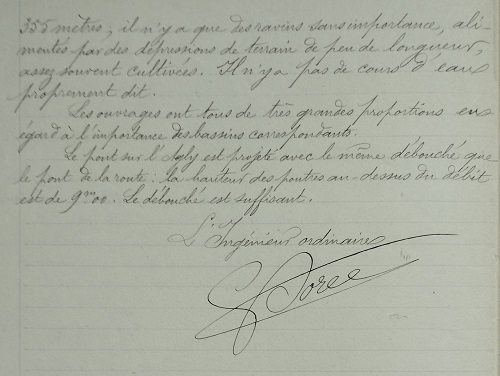 355 mètres ; il n'y a que des ravins sans importance, ali-
mentés par des dépressions de terrain de peu de longueur,
assez souvent cultivées. Il n'y a pas de cours d'eau
proprement dit.
Les ouvrages ont tous de très grandes proportions eu
égard à l'importance des bassins correspondants.
Le pont sur l'Agly est projeté avec le même débouché que
le pont de la route : la hauteur des poutres au-dessus du débit
est de 9m00. Le débouché est suffisant.
L'Ingénieur ordinaire